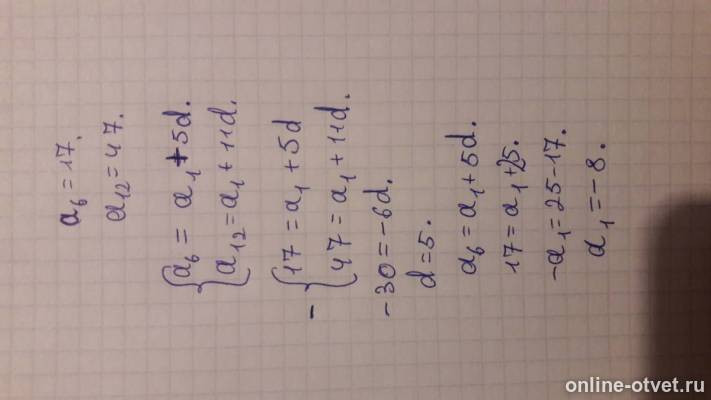 a₆ = 17.
a₁₂ = 47.
{ a₆ = a₁ + 5d.
{ a₁₂ = a₁ + 11d.
- { 17 = a₁ + 5d
{ 47 = a₁ + 11d.
-30 = -6d.
d = 5.
a₆ = a₁ + 5d.
17 = a₁ + 25.
-a₁ = 25 - 17.
a₁ = -8.
online-otvet.ru